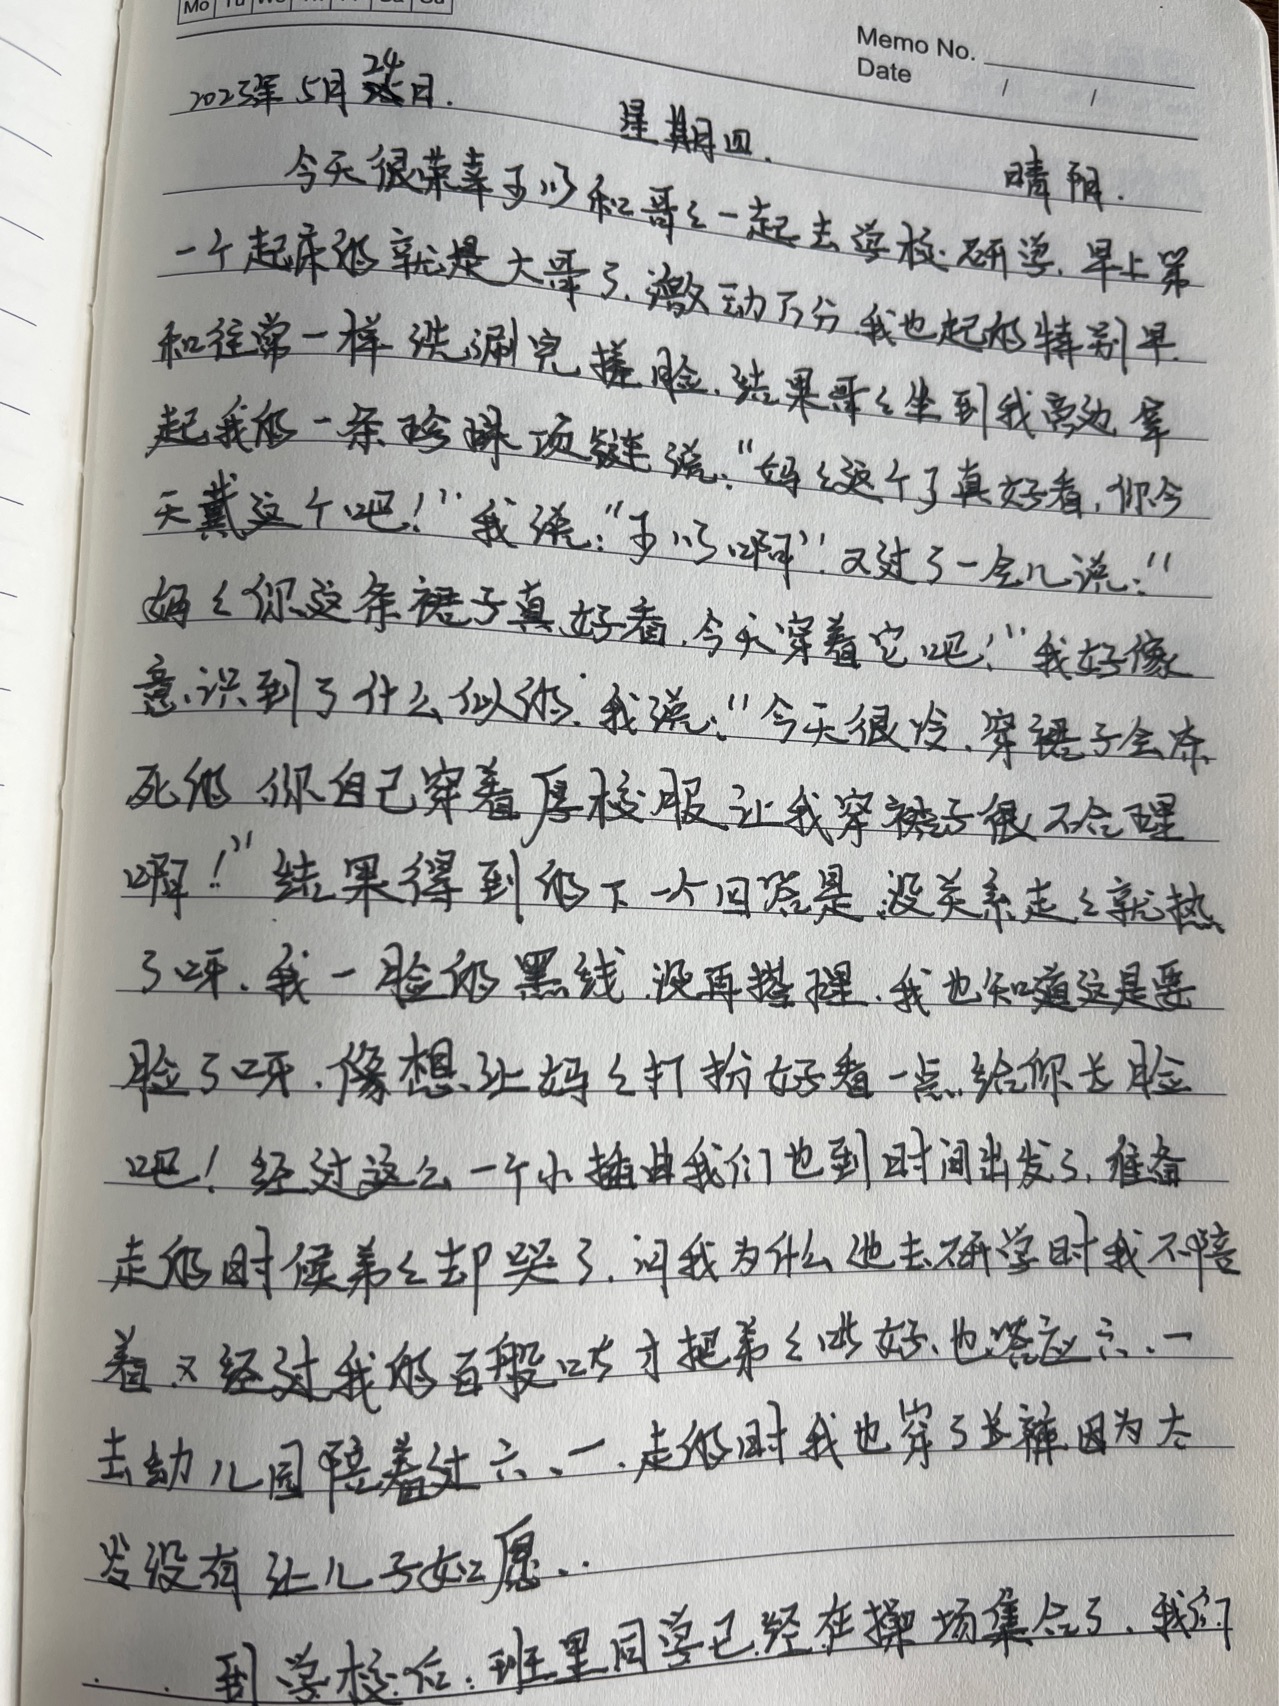 Mo Tu We Th Fr Sa Su
Memo No.
Date / /
2023年5月24日.
星期四.
晴阴.
今天很荣幸可以和哥々一起去学校研学.早上第
一个起床的就是大哥了.激动万分.我也起的特别早.
和往常一样洗涮完搓脸.结果哥々坐到我旁边拿
起我的一条珍珠项链说:“妈々这个了真好看,你今
天戴这个吧!”我说:“可以啊”.又过了一会儿说:“
妈々你这条裙子真好看.今天穿着它吧!”我好像
意识到了什么似的.我说:“今天很冷.穿裙子会冻
死的 你自己穿着厚校服让我穿裙子很不合理
啊!”结果得到的下一个回答是:没关系走々就热
了呀.我一脸的黑线 没再搭理.我也知道这是要
脸了呀.像想让妈々打扮好看一点给你长脸
吧!经过这么一个小插曲我们也到时间出发了.准备
走的时候弟々却哭了.问我为什么他去研学时我不陪
着.又经过我的百般哄才把弟々哄好.也答应六、一
去幼儿园陪着过六、一.走的时我也穿了长裤因为太
冷没有让儿子如愿..
到学校后:班里同学已经在操场集合了.我们